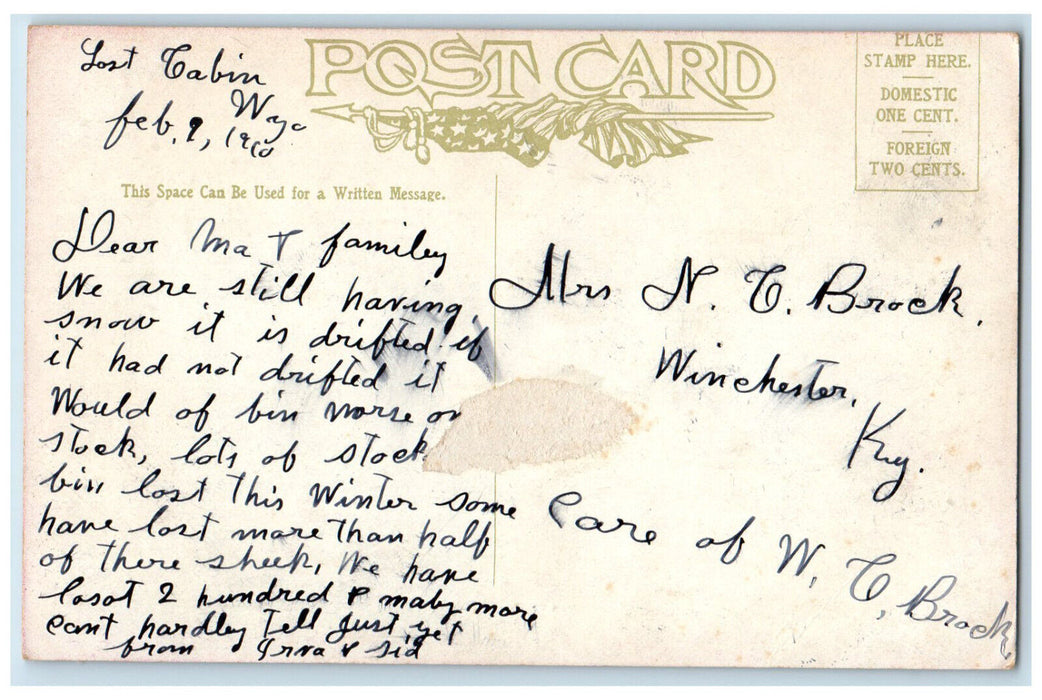 Lost Cabin
Wyo
feb. 9, 1910
POST CARD
PLACE
STAMP HERE.
DOMESTIC
ONE CENT.
FOREIGN
TWO CENTS.
This Space Can Be Used for a Written Message.
Dear Ma & familey
We are still having
snow it is drifted if
it had not drifted it
Would of bin worse on
stock, lots of stock
bin lost this Winter some
have lost more than half
of there sheek, We have
losot 2 hundred & maby more
cant hardley Tell Just yet
from Irva & Sid
Mrs N. C. Brock.
Winchester,
Ky.
Care of W. C, Brock,